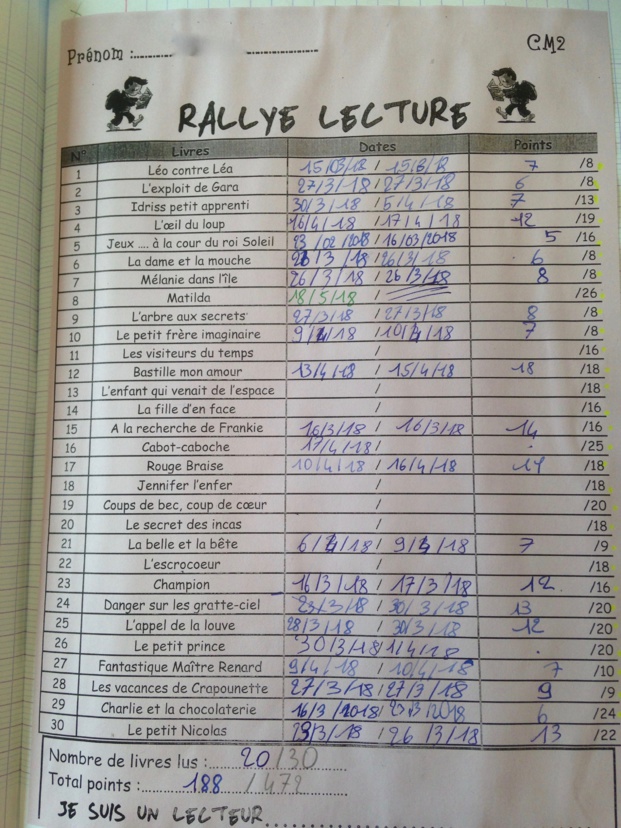 Prénom :
CM2
RALLYE LECTURE
N° Livres Dates Points
1 Léo contre Léa 15/03/18 / 15/3/18 7 /8
2 L'exploit de Gara 27/3/18 / 27/3/18 6 /8
3 Idriss petit apprenti 30/3/18 / 5/4/18 7 /13
4 L'œil du loup 16/4/18 / 17/4/18 12 /19
5 Jeux .... à la cour du roi Soleil 23/02/2018 / 16/03/2018 5 /16
6 La dame et la mouche 26/3/18 / 26/3/18 6 /8
7 Mélanie dans l'île 26/3/18 / 26/3/18 8 /8
8 Matilda 18/5/18 / /26
9 L'arbre aux secrets 27/3/18 / 27/3/18 8 /8
10 Le petit frère imaginaire 9/4/18 / 10/4/18 7 /8
11 Les visiteurs du temps / /16
12 Bastille mon amour 13/4/18 / 15/4/18 18 /18
13 L'enfant qui venait de l'espace / /18
14 La fille d'en face / /16
15 A la recherche de Frankie 16/3/18 / 16/3/18 14 /16
16 Cabot-caboche 17/4/18 / /25
17 Rouge Braise 10/4/18 / 16/4/18 14 /18
18 Jennifer l'enfer / /18
19 Coups de bec, coup de cœur / /20
20 Le secret des incas / /18
21 La belle et la bête 6/4/18 / 9/4/18 7 /9
22 L'escroceur / /18
23 Champion 16/3/18 / 17/3/18 12 /16
24 Danger sur les gratte-ciel 23/3/18 / 30/3/18 13 /20
25 L'appel de la louve 28/3/18 / 30/3/18 12 /20
26 Le petit prince 30/3/18 / 1/4/18 /20
27 Fantastique Maître Renard 9/4/18 / 10/4/18 7 /10
28 Les vacances de Crapounette 27/3/18 / 27/3/18 9 /9
29 Charlie et la chocolaterie 16/3/2018 / 23/3/2018 6 /24
30 Le petit Nicolas 23/3/18 / 26/3/18 13 /22
Nombre de livres lus : 20/30
Total points : 188 /479
JE SUIS UN LECTEUR